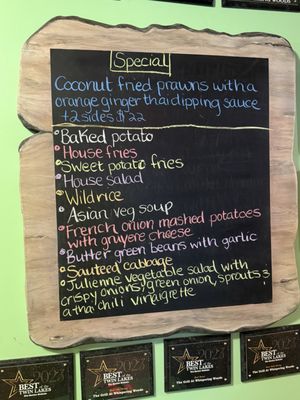 Special
Coconut fried prawns with a
orange ginger thai dipping sauce
+2 sides $22
Baked potato
House fries
Sweet potato fries
House Salad
Wild rice
Asian veg soup
French onion mashed potatoes
with gruyere cheese
Butter green beans with garlic
Sauteed cabbage
Julienne vegetable salad with
crispy onions, green onion, sprouts &
a thai chili vinaigrette
BEST
TWIN LAKES
BEST
TWIN LAKES
The Grill at Whispering Woods
BEST
TWIN LAKES
The Grill at Whispering Woods
BEST
TWIN LAKES